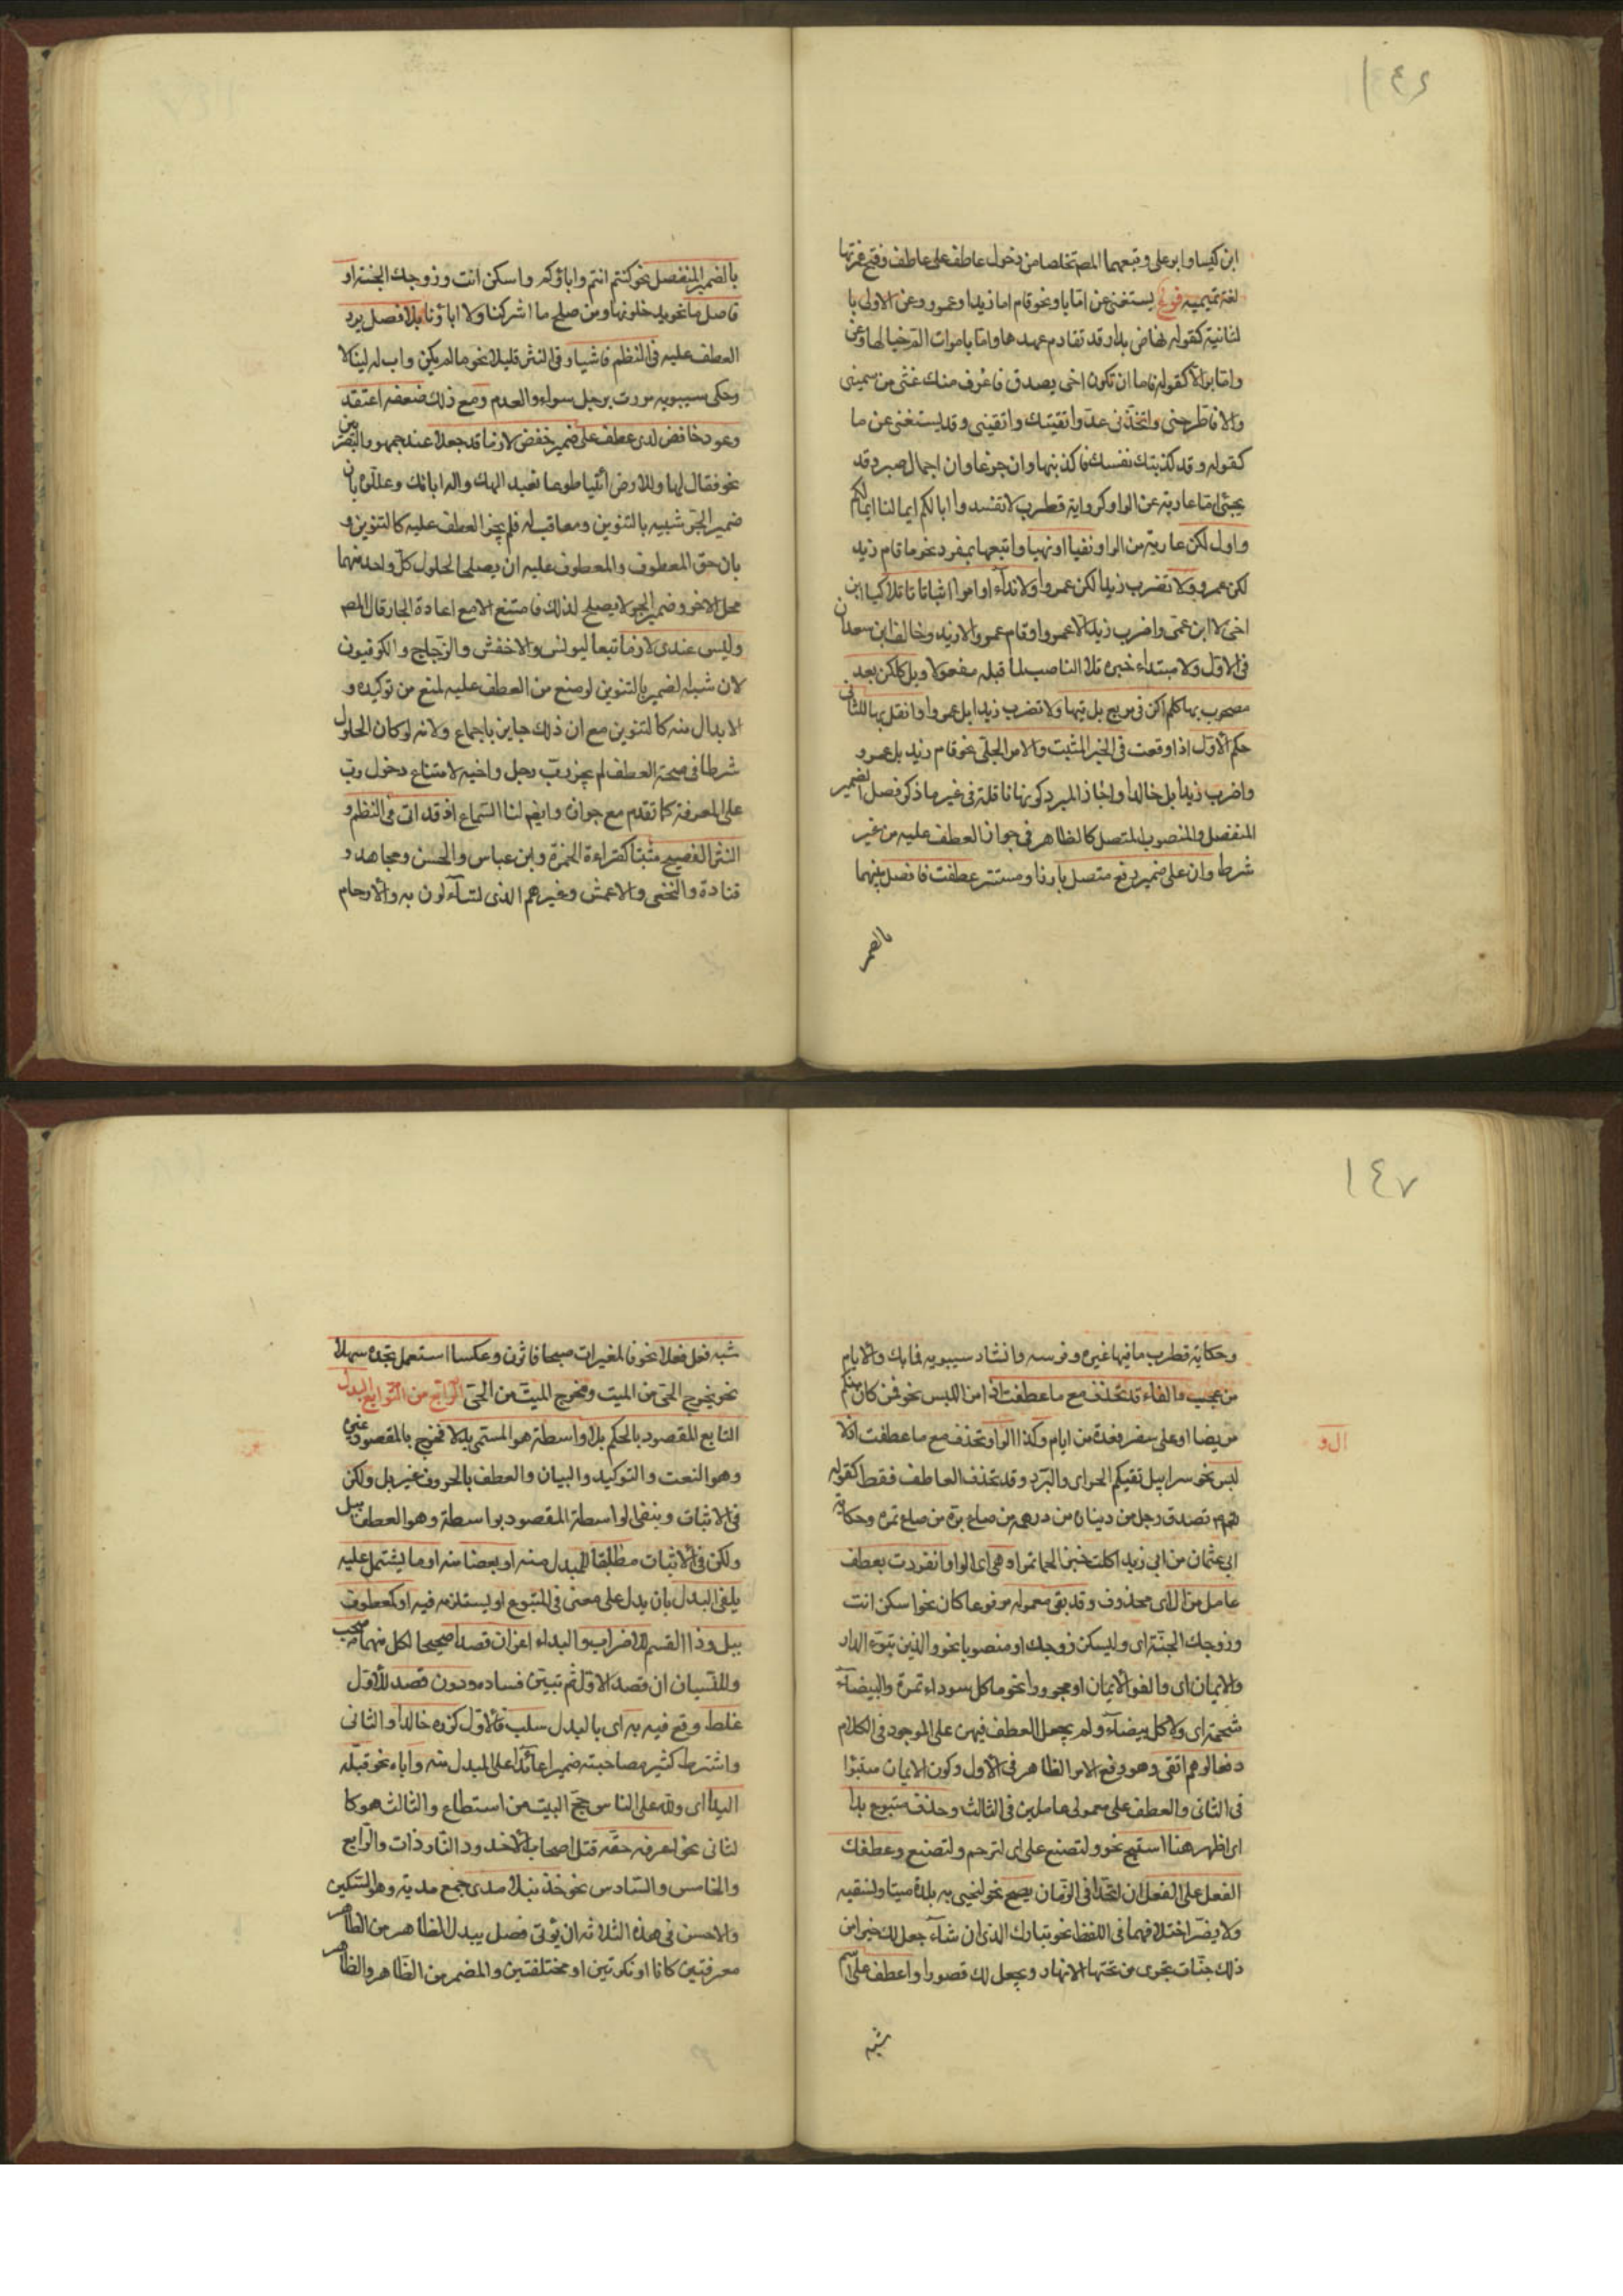 ١٤٦
ابن كيسا وابو على وتبعهما المص تخلصا من دخول عاطف على عاطف وفتح همزتها
لغة تميميه فرع يستغنى عن اما باو نحو قام اما زيد او عمرو وعن الاولى با
لثانية كقوله نهاض بدار قد تقادم عهدها واما باموات الم خيالها وعن
واما بوالا كقوله فاما ان تكون اخى بصدق فاعرف منك غثى من سمينى
والا فاطرحنى واتخذنى عدوا اتقيتك واتقينى وقد يستغنى عن ما
كقوله وقد كذبتك نفسك فاكذبنها وان جزعا وان اجمال صبر وقد
يجئ اما عارية عن الواو كرواية قطرب لا تفسدوا ابالكم ايما لنا ايما لكم
واول لكن عارية من الواو نفيا او نهيا واتبعها بمفرد نحو ما قام زيد
لكن عمرو ولا تضرب زيدا لكن عمروا ولا نداء او امرا او اثباتا تلا كيا ابن
اخى لا ابن عمى واضرب زيدا لا عمروا وقام عمرو لا زيد وخالف ابن سعدان
فى الاول ولا مبتداء خبره تلا الناصب لما قبله مفعولا وبل كلكن بعد
مصحوبيها كلم اكن فى مربع بل تيها ولا تضرب زيدا بل عمروا وانقل بها للثانى
حكم الاول اذا وقعت فى الخبر المثبت والامر الجلى نحو قام زيد بل عمرو
واضرب زيدا بل خالدا واجاز المبرد كونها ناقلة فى غير ما ذكر فصل الضمير
المنفصل والمنصوب المتصل كالظاهر فى جواز العطف عليه من غير
شرط وان على ضمير رفع متصل بارز او مستتر عطفت فافصل بينهما
بالضمير
بالضمير المنفصل نحو كنتم انتم واباؤكم واسكن انت وزوجك الجنة او
فاصل ما نحو يدخلونها ومن صلح ما اشركنا ولا اباؤنا بلا فصل يرد
العطف عليه فى النظم فاشيا وفى النثر قليلا نحو ما لم يكن واب له لينالا
وحكى سيبويه مررت برجل سواء والعدم ومع ذلك ضعفه اعتقد
وعود خافض لدى عطف على ضمير خفض لازما قد جعلا عند جمهور البصريين
نحو فقال لها وللارض ائتيا طوعا نعبد الهك واله ابائك وعللوه بان
ضمير الجر شبيه بالتنوين ومعاقب له فلم يجز العطف عليه كالتنوين و
بان حق المعطوف والمعطوف عليه ان يصلحا لحلول كل واحد منهما
محل الاخر وضمير الجر لا يصلح لذلك فامتنع الا مع اعادة الجار قال المص
وليس عندى لازما تبعا ليونس والاخفش والزجاج والكوفيون
لان شبه الضمير بالتنوين لو منع من العطف عليه لمنع من توكيده و
الابدال منه كالتنوين مع ان ذلك جايز باجماع ولانه لو كان الحلول
شرطا فى صحة العطف لم يجز رب رجل واخيه لامتناع دخول رب
على المعرفة كما تقدم مع جوازه وايضم لنا السماع اذ قد اتى فى النظم و
النثر الفصيح مثبتا كقراءة الحمزة وابن عباس والحسن ومجاهد و
قتادة والنخعى والاعمش وغيرهم الذى تساءلون به والارحام
١٤٧
وحكاية قطرب ما فيها غيره وفرسه وانشاد سيبويه فما بك والايام
من عجب والفاء قد تحذف مع ما عطفت اذا امن اللبس نحو فمن كان منكم
مريضا او على سفر فعدة من ايام وكذا الواو تحذف مع ما عطفت اذ لا
لبس نحو سرابيل تقيكم الحر اى والبرد وقد تحذف العاطف فقط كقوله
تصدق رجل من ديناره من درهمه من صاع بره من صاع تمره وحكاية
ابى عثمان من ابى زيد اكلت خبزا لحما تمرا وهى اى الواو انفردت بعطف
عامل مزال اى محذوف وقد بقى معموله مرفوعا كان نحو اسكن انت
وزوجك الجنة اى وليسكن زوجك او منصوبا نحو والذين تبوء الدار
والايمان اى والفوا الايمان او مجرورا نحو ما كل سوداء تمرة والبيضاء
شحمة اى ولا كل بيضاء ولم يجعل العطف فيهن على الموجود فى الكلام
دفعا لوهم اتقى وهو رفع الامر الظاهر فى الاول وكون الايمان متبوا
فى الثانى والعطف على معمولى عاملين فى الثالث وحذف متبوع بدا
اى اظهر هنا استبح نحو ولتصنع على اى لترحم ولتصنع وعطفك
الفعل على الفعل ان اتحدا فى الزمان يصح نحو لنحيى به بلدة ميتا ونسقيه
ولا يضر اختلافهما فى اللفظ نحو تبارك الذى ان شاء جعل لك خيرا من
ذلك جنات تجرى من تحتها الانهار ويجعل لك قصورا واعطف على اسم
شبه
شبه فعل فعلا نحو فالمغيرات صبحا فاثرن وعكسا استعمل تجده سهلا
نحو يخرج الحى من الميت ومخرج الميت من الحى الرابع من التوابع البدل
التابع المقصود بالحكم بلا واسطة هو المسمى بدلا فخرج بالمقصود غيره
وهو النعت والتوكيد والبيان والعطف بالحروف غير بل ولكن
فى الاثبات وبنفى الواسطة المقصود بواسطة وهو العطف ببل
ولكن فى الاثبات مطابقا للمبدل منه او بعضا منه او ما يشتمل عليه
يلفى البدل بان يدل على معنى فى المتبوع او يستلزمه فيه او كمعطوف
ببل وذا القسم للاضراب والبداء اعز ان قصدا صحيحا لكل منهما صحب
وللنسيان ان قصد الاول ثم تبين فساده ودون قصد للاول
غلط وقع فيه به اى بالبدل سلب فالاول كزره خالدا والثانى
واشترط كثير مصاحبته ضميرا عائدا على المبدل منه واباه نحو قبله
اليدا اى ولله على الناس حج البيت من استطاع والثالث هو كا
لثانى نحو اعرفه حقه قتل اصحاب الاخدود النار ذات والرابع
والخامس والسادس نحو خذ نبلا مدى جمع مدية وهو السكين
والاحسن فى هذه الثلاثه ان يؤتى فصل يبدل الظاهر من الظاهر
معرفتين كانا او نكرتين او مختلفتين والمضمر من الظاهر والظاهر